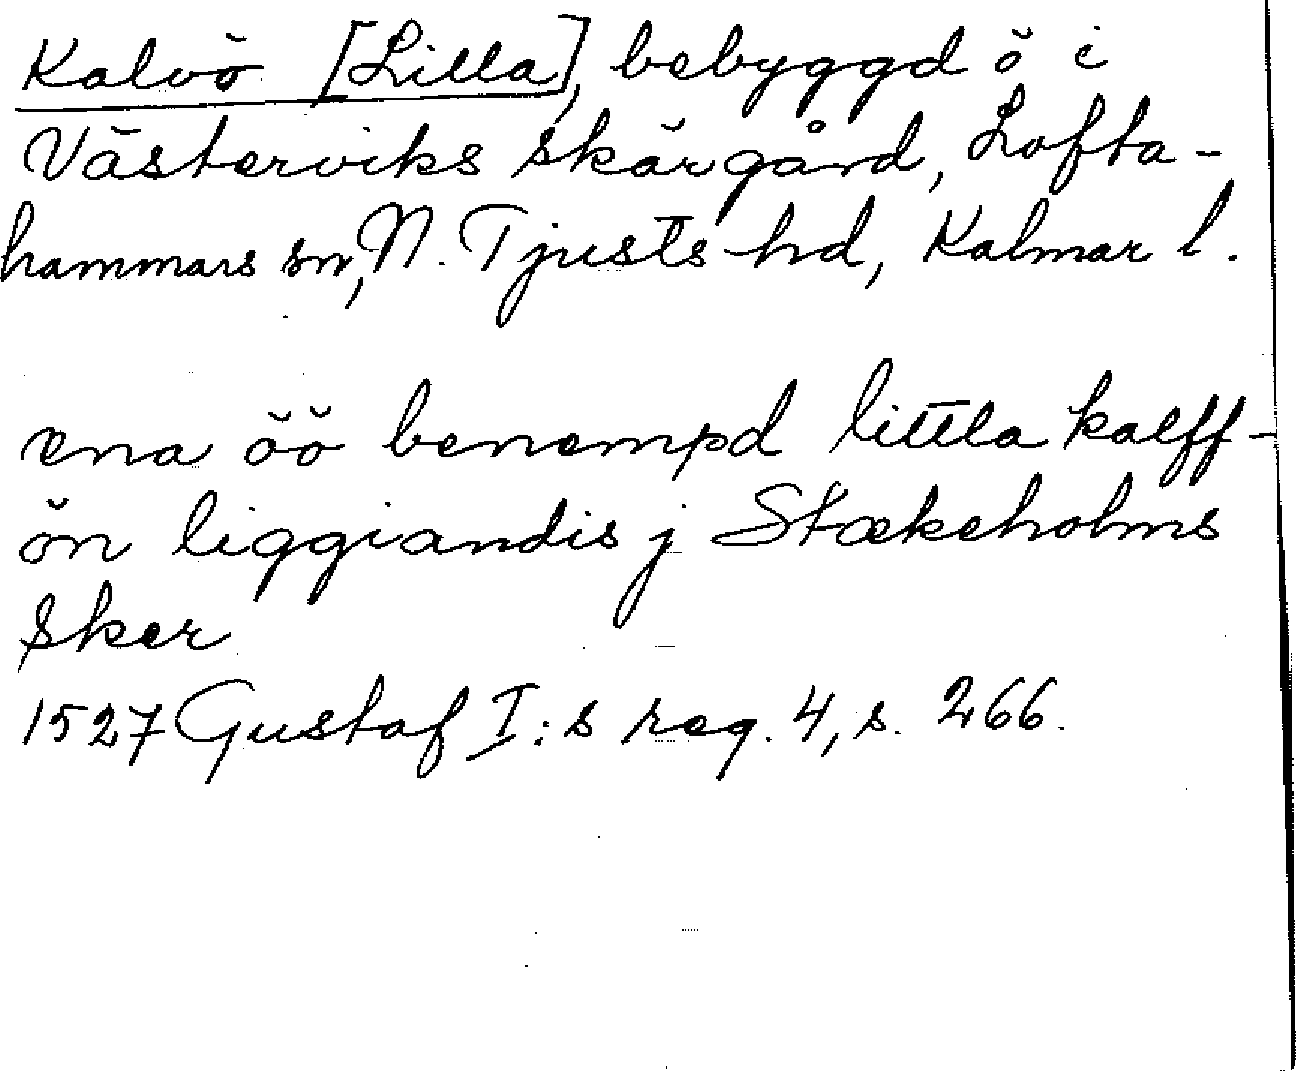 Kalvö [Lilla], bebyggd ö i
Västerviks skärgård, Lofta-
hammars sn, N. Tjusts hd, Kalmar l.
ena öö benempd littla kalff-
ön liggiandis j Stækeholms
sker
1527 Gustaf I:s reg. 4, s. 266.